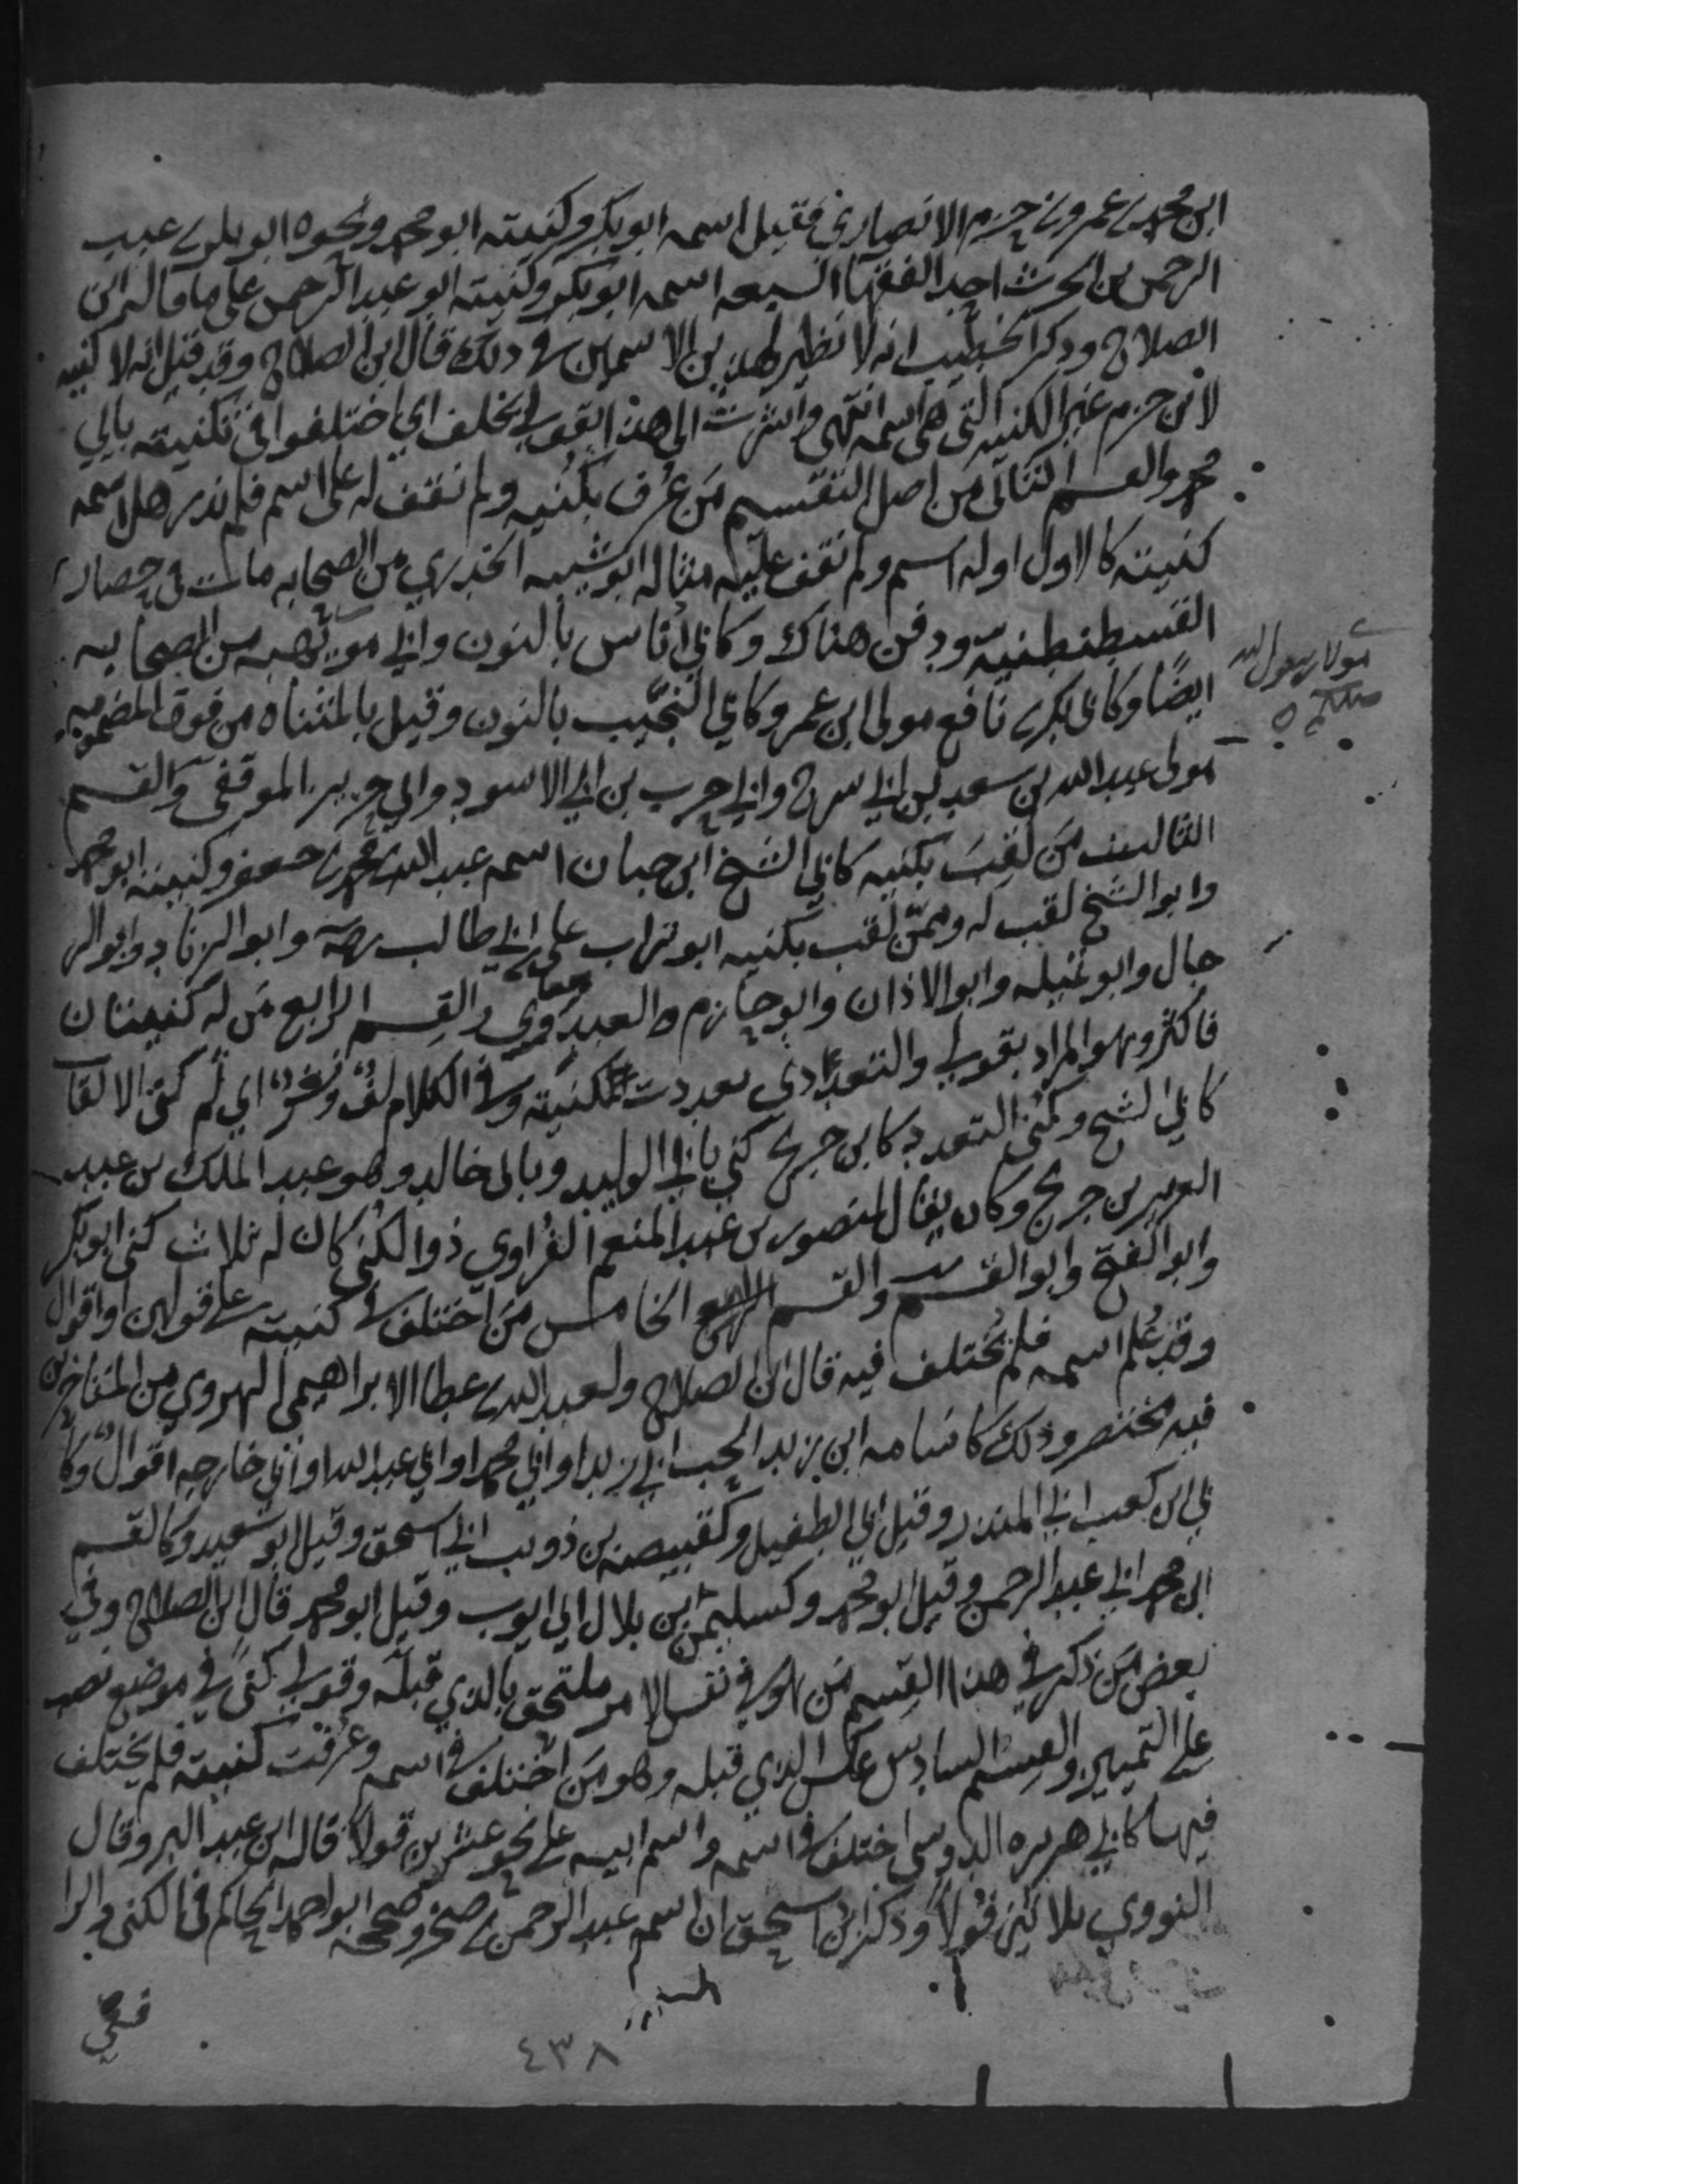 ابن محمد بن عمرو بن حزم الانصاري فقيل اسمه ابو بكر وكنيته ابو محمد ونحوه ابو بكر بن عبد
الرحمن بن الحرث احد الفقها السبعه اسمه ابو بكر وكنيته ابو عبد الرحمن على ما قاله ابن
الصلاح وذكر الخطيب انه لا نظير لهذين الاسمين في ذلك قال ابن الصلاح وقد قيل انه لا كنيه
لابن حزم غير الكنيه التي هي اسمه انتهى واشرت الى هذا بقولي بخلف اي اختلفوا في تكنيته بابي
محمد والقسم الثاني من اصل التقسيم من عرف بكنيه ولم نقف له على اسم فلم ندر هل اسمه
كنيته كالاول او له اسم ولم نقف عليه مثاله ابو شيبه الخدري من الصحابه مات في حصار
القسطنطنيه ودفن هناك وكابي اُناس بالنون وابي مويهبه من الصحابه
ايضًا وكابي بكر بن نافع مولى ابن عمر وكابي النجيب بالنون وقيل بالمثناه من فوق المضمومه
مولى عبد الله بن سعد بن ابي سرح وابي حرب بن ابي الاسود وابي حريز الموقفي والقسم
الثالث من لقب بكنيه كابي الشيخ ابن حبان اسمه عبد الله بن محمد بن جعفر وكنيته ابو محمد
وابو الشيخ لقب له وممن لقب بكنيه ابو تراب علي بن ابي طالب وابو الزناد وابو الر
جال وابو تميله وابو الاذان وابو حازم العبدوي والقسم الرابع من له كنيتان
فاكثر وهو المراد بقولي والتعدد اي تعددت كنيته وفي الكلام لف ونشر اي ثم كنى الالقاب
كابي الشيخ وكنى التعدد كابن جريج كني بابي الوليد وبابي خالد وهو عبد الملك بن عبد
العزيز بن جريج وكان يقال لمنصور بن عبد المنعم الفُراوي ذو الكنى كان له ثلاث كنى ابو بكر
وابو الفتح وابو القسم والقسم الخامس من اختلف في كنيته على قولين او اقوال
وقد عُلم اسمه فلم يختلف فيه قال ابن الصلاح ولعبد الله بن عطا الابراهيمي الهروي من المتاخرين
فيه مختصر وذلك كاسامه ابن زيد الحب ابي زيد او ابي محمد او ابي عبد الله او ابي خارجه اقوال وكا
بي ابن كعب ابي المنذر وقيل ابي الطفيل وكقبيصه بن ذويب ابي اسحق وقيل ابو سعيد وكالقسم
ابن محمد ابي عبد الرحمن وقيل ابو محمد وكسليمن ابن بلال ابي ايوب وقيل ابو محمد قال ابن الصلاح وفي
بعض من ذكر في هذا القسم من هو في نفس الامر ملتحق بالذي قبله وقولي كنى في موضع نصب
على التمييز والقسم السادس عكس الذي قبله وهو من اختلف في اسمه وعرفت كنيته فلم يختلف
فيها كابي هريره الدوسي اختلف في اسمه واسم ابيه على نحو عشرين قولا قاله ابن عبد البر وقال
النووي ثلاثين قولاً وذكر ابن اسحق ان اسمه عبد الرحمن بن صخر وصححه ابو احمد الحاكم في الكنى والرا
فعي
مولا رسول الله
صلعم
٤٣٨